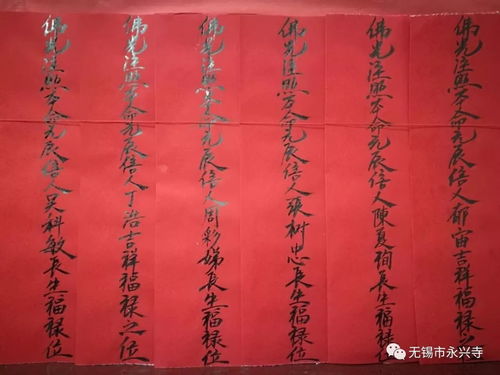 佛光注照本命元辰信人郁宙吉祥福禄之位
佛光注照本命元辰信人陳夏琦長生福禄位
佛光注照本命元辰信人張树忠長生福禄位
佛光注照本命元辰信人周彩娣長生福禄位
佛光注照本命元辰信人丁浩吉祥福禄之位
佛光注照本命元辰信人吴科敏長生福禄位
无锡市永兴寺